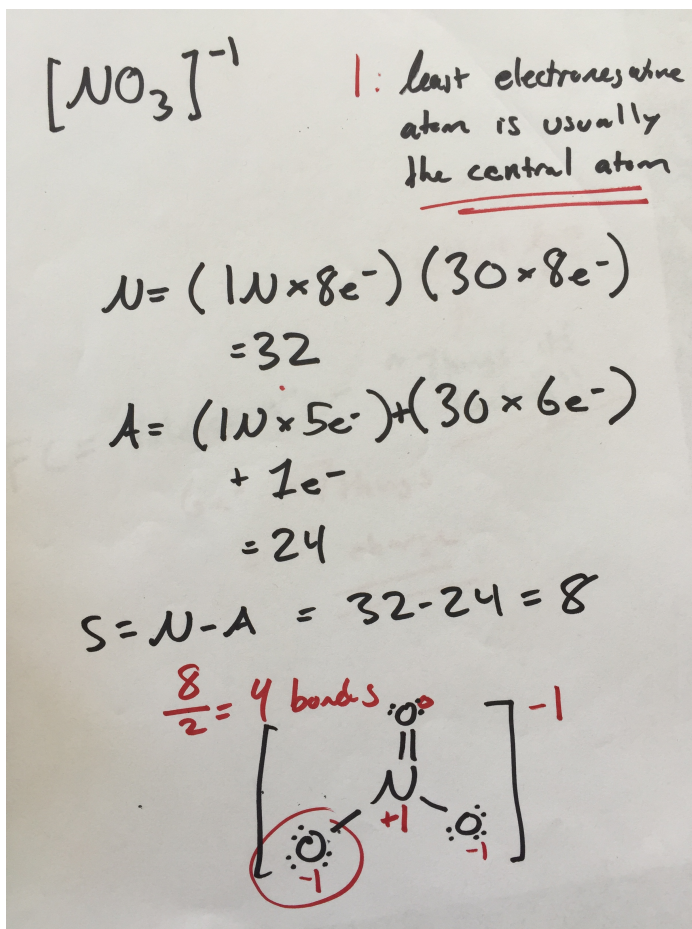 [NO₃]⁻¹
1: least electronegative
atom is usually
the central atom
N = (1N × 8e⁻) (3O × 8e⁻)
= 32
A = (1N × 5e⁻) + (3O × 6e⁻)
+ 1e⁻
= 24
S = N - A = 32 - 24 = 8
8/2 = 4 bonds
O 0
-1
N
+1
O
-1
O
-1